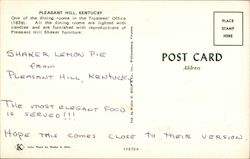 PLEASANT HILL, KENTUCKY
One of the dining rooms in the Trustees' Office
(1839). All the dining rooms are lighted with
candles and are furnished with reproductions of
Pleasant Hill Shaker furniture.
SHAKER LEMON PIE
FROM
PLEASANT HILL, KENTUCKY
THE MOST ELEGANT FOOD
IS SERVED!!!
HOPE THIS COMES CLOSE TO THEIR VERSION
POST CARD
Address
PLACE
STAMP
HERE